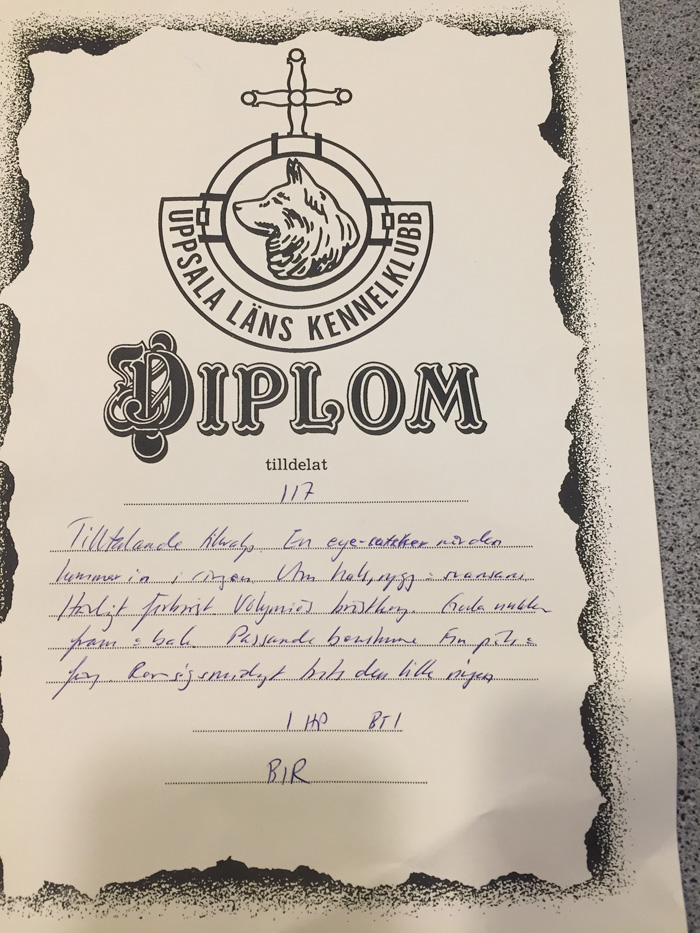 UPPSALA LÄNS KENNELKLUBB
DIPLOM
tilldelat
117
Tilltalande En eye-catcher när den
kommer in i ringen. Utm hals, rygg svansans.
Härligt förbröst. bröstkorg. Goda vinklar
fram o bak. Passande benstomme Fin päls o
färg Rör sig smidigt den lilla ringen
1 HP BT1
BIR